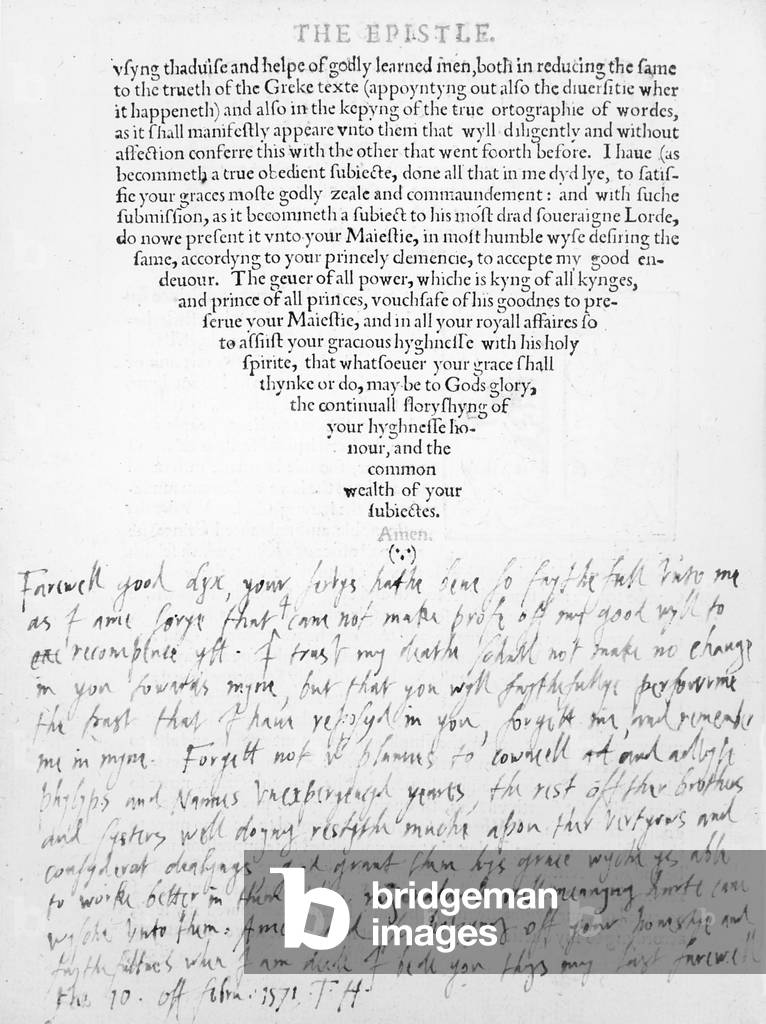 THE EPISTLE.
vsyng thaduise and helpe of godly learned men, both in reducing the same
to the trueth of the Greke texte (appoyntyng out also the diuersitie wher
it happeneth) and also in the kepyng of the true ortographie of wordes,
as it ſhall manifeſtly appeare vnto them that wyll diligently and without
affection conferre this with the other that went foorth before. I haue (as
becommeth a true obedient ſubiecte, done all that in me dyd lye, to ſatiſ-
fie your graces moſte godly zeale and commaundement: and with ſuche
ſubmiſſion, as it becommeth a ſubiect to his moſt drad ſoueraigne Lorde,
do nowe preſent it vnto your Maieſtie, in moſt humble wyſe deſiring the
ſame, accordyng to your princely clemencie, to accepte my good en-
deuour. The geuer of all power, whiche is kyng of all kynges,
and prince of all princes, vouchſafe of his goodnes to pre-
ſerue your Maieſtie, and in all your royall affaires ſo
to aſſiſt your gracious hyghneſſe with his holy
ſpirite, that whatſoeuer your grace ſhall
thynke or do, may be to Gods glory,
the continuall floryſhyng of
your hyghneſſe ho-
nour, and the
common
wealth of your
ſubiectes.
Amen.
Farewell good dyx, your serbys hathe bene so faythefull vnto me
as I ame sorye that I cane not make profe off my good wyll to
recompence ytt. I trust my deathe schall not make no change
in you towards myne, but that you wyll faythefullye perfourme
the trust that I haue reposyd in you, forgett me, and remember
me in myne. Forgett not to cowncell and advyse
Phylyps and Nannes vnexperyencyd yeares, the rest off ther brothers
and systers well doyng restythe muche apon ther vertyews and
consyderat dealyngs grant them hys grace wyche ys able
to worke better in them my well meanyng harte can
wyshe vnto them. Amen off your honestye and
faythefullnes when I am deade I bede you thys my last farewell
the 10. off febru. 1571. T.H.
b bridgeman
images